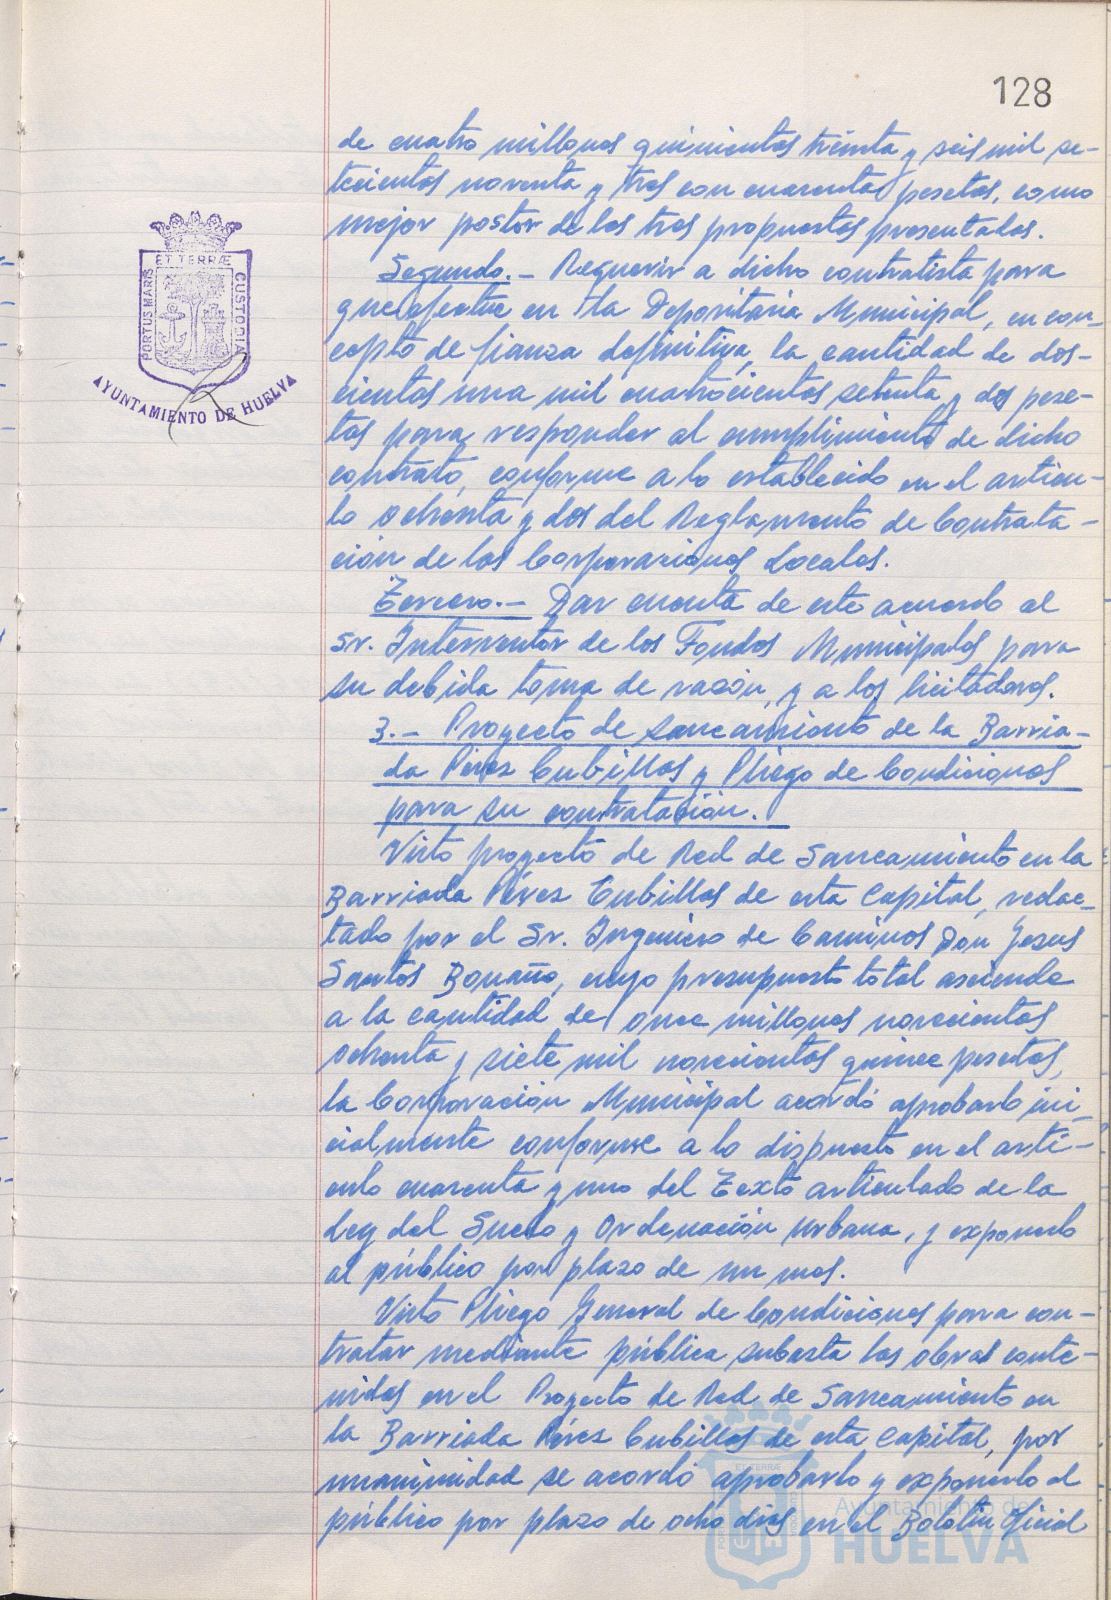 128
de cuatro millones quinientos treinta y seis mil se-
tecientos noventa y tres con cuarenta pesetas, como
mejor postor de las tres propuestas presentadas.
Segundo.- Requerir a dicho contratista para
que efectue en la Depositaria Municipal, en con-
cepto de fianza definitiva, la cantidad de dos-
cientas una mil cuatrocientas setenta y dos pese-
tas para responder al cumplimiento de dicho
contrato, conforme a lo establecido en el artícu-
lo ochenta y dos del Reglamento de Contrata-
ción de las Corporaciones Locales.
Tercero.- Dar cuenta de este acuerdo al
Sr. Interventor de los Fondos Municipales para
su debida toma de razón, y a los licitadores.
3.- Proyecto de saneamiento de la Barria-
da Pérez Cubillas y Pliego de Condiciones
para su contratación.
Visto proyecto de Red de Saneamiento en la
Barriada Pérez Cubillas de esta Capital, redac-
tado por el Sr. Ingeniero de Caminos Don Jesus
Santos Bonaño, cuyo presupuesto total asciende
a la cantidad de once millones novecientas
ochenta y siete mil novecientas quince pesetas,
la Corporación Municipal acordó aprobarlo ini-
cialmente conforme a lo dispuesto en el artí-
culo cuarenta y uno del Texto articulado de la
Ley del Suelo y Ordenación Urbana, y exponerlo
al público por plazo de un mes.
Visto Pliego General de Condiciones para con-
tratar mediante pública subasta las obras conte-
nidas en el Proyecto de Red de Saneamiento en
la Barriada Pérez Cubillas de esta Capital, por
unanimidad se acordó aprobarlo y exponerlo al
público por plazo de ocho dias en el Boletin Oficial
PORTUS MARIS ET TERRÆ CUSTODIA
AYUNTAMIENTO DE HUELVA
Ayuntamiento de
HUELVA